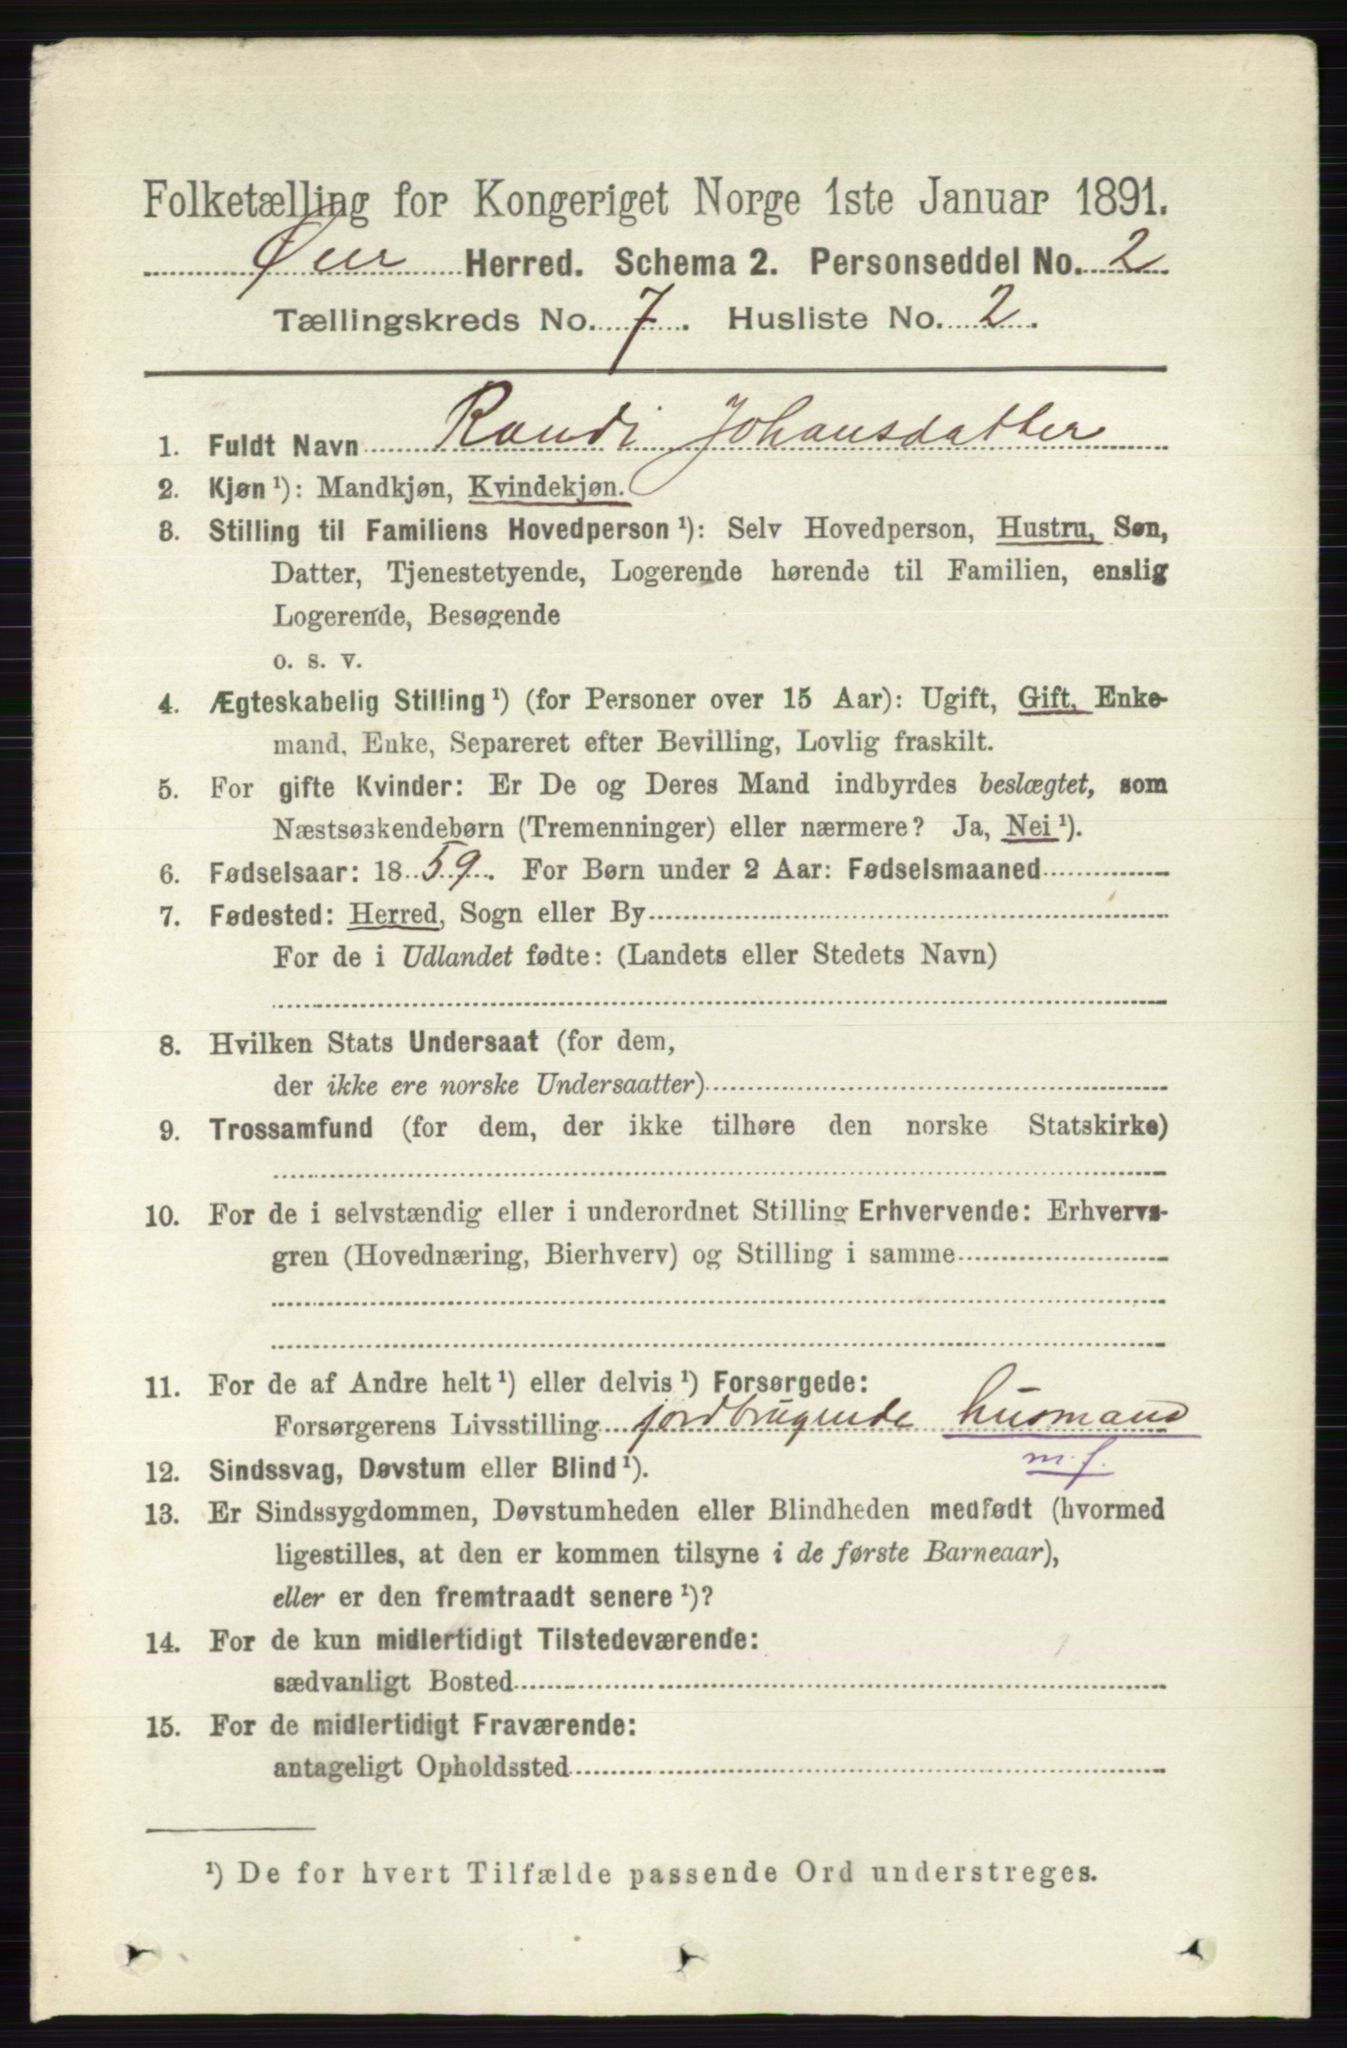 Folketælling for Kongeriget Norge 1ste Januar 1891.
Øier Herred. Schema 2. Personseddel No. 2
Tællingskreds No. 7. Husliste No. 2.
1. Fuldt Navn Randi Johansdatter
2. Kjøn ¹): Mandkjøn, Kvindekjøn.
3. Stilling til Familiens Hovedperson ¹): Selv Hovedperson, Hustru, Søn,
Datter, Tjenestetyende, Logerende hørende til Familien, enslig
Logerende, Besøgende
o. s. v.
4. Ægteskabelig Stilling ¹) (for Personer over 15 Aar): Ugift, Gift, Enke-
mand, Enke, Separeret efter Bevilling, Lovlig fraskilt.
5. For gifte Kvinder: Er De og Deres Mand indbyrdes beslægtet, som
Næstsøskendebørn (Tremenninger) eller nærmere? Ja, Nei ¹).
6. Fødselsaar: 18 59. For Børn under 2 Aar: Fødselsmaaned
7. Fødested: Herred, Sogn eller By
For de i Udlandet fødte: (Landets eller Stedets Navn)
8. Hvilken Stats Undersaat (for dem,
der ikke ere norske Undersaatter)
9. Trossamfund (for dem, der ikke tilhøre den norske Statskirke)
10. For de i selvstændig eller i underordnet Stilling Erhvervende: Erhvervs-
gren (Hovednæring, Bierhverv) og Stilling i samme
11. For de af Andre helt ¹) eller delvis ¹) Forsørgede:
Forsørgerens Livsstilling jordbrugende husmand
m.f.
12. Sindssvag, Døvstum eller Blind ¹).
13. Er Sindssygdommen, Døvstumheden eller Blindheden medfødt (hvormed
ligestilles, at den er kommen tilsyne i de første Barneaar),
eller er den fremtraadt senere ¹)?
14. For de kun midlertidigt Tilstedeværende:
sædvanligt Bosted
15. For de midlertidigt Fraværende:
antageligt Opholdssted
¹) De for hvert Tilfælde passende Ord understreges.